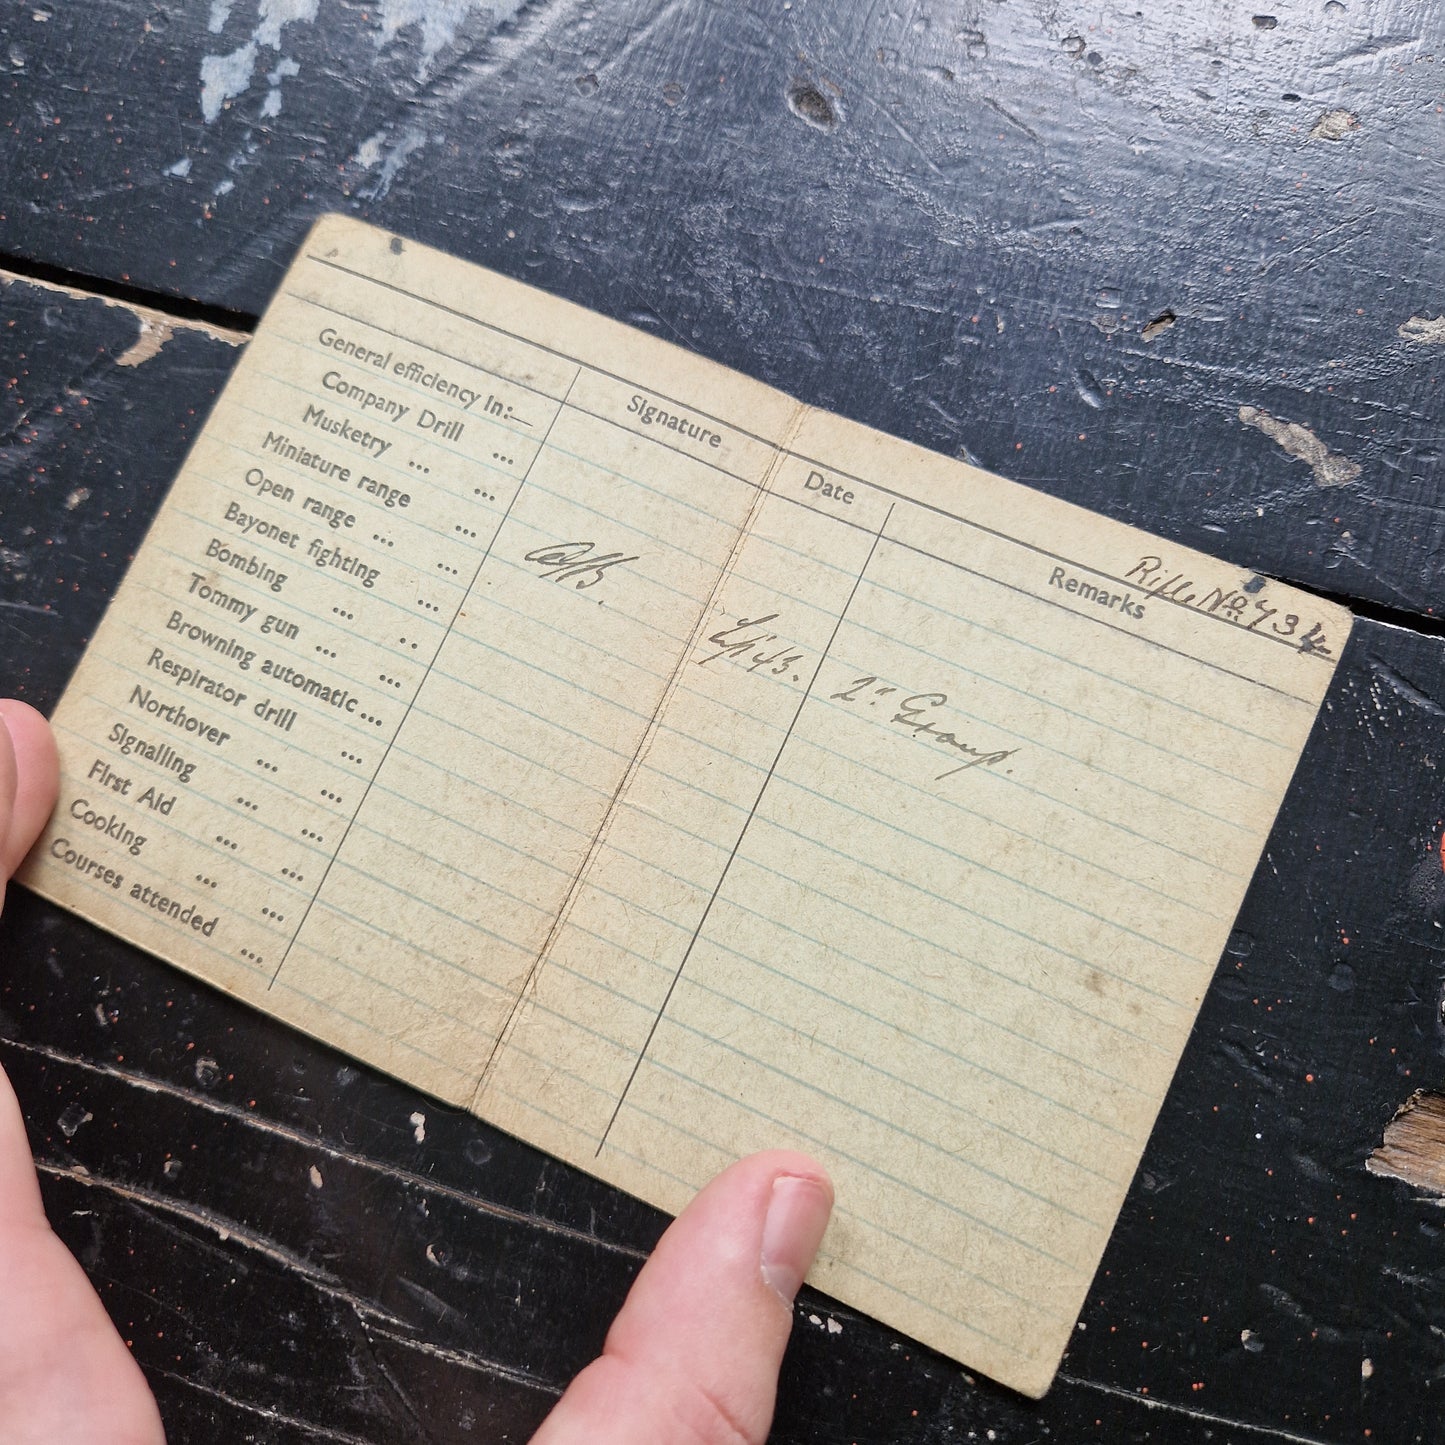 Rifle No 734
Signature Date Remarks
General efficiency in:—
Company Drill ...
Musketry ... ...
Miniature range ...
Open range ... ...
Bayonet fighting ...
Bombing ... ..
Tommy gun ... ...
Browning automatic...
Respirator drill ...
Northover ... ...
Signalling ... ...
First Aid ... ...
Cooking ... ...
Courses attended ...
43. 2" Group.